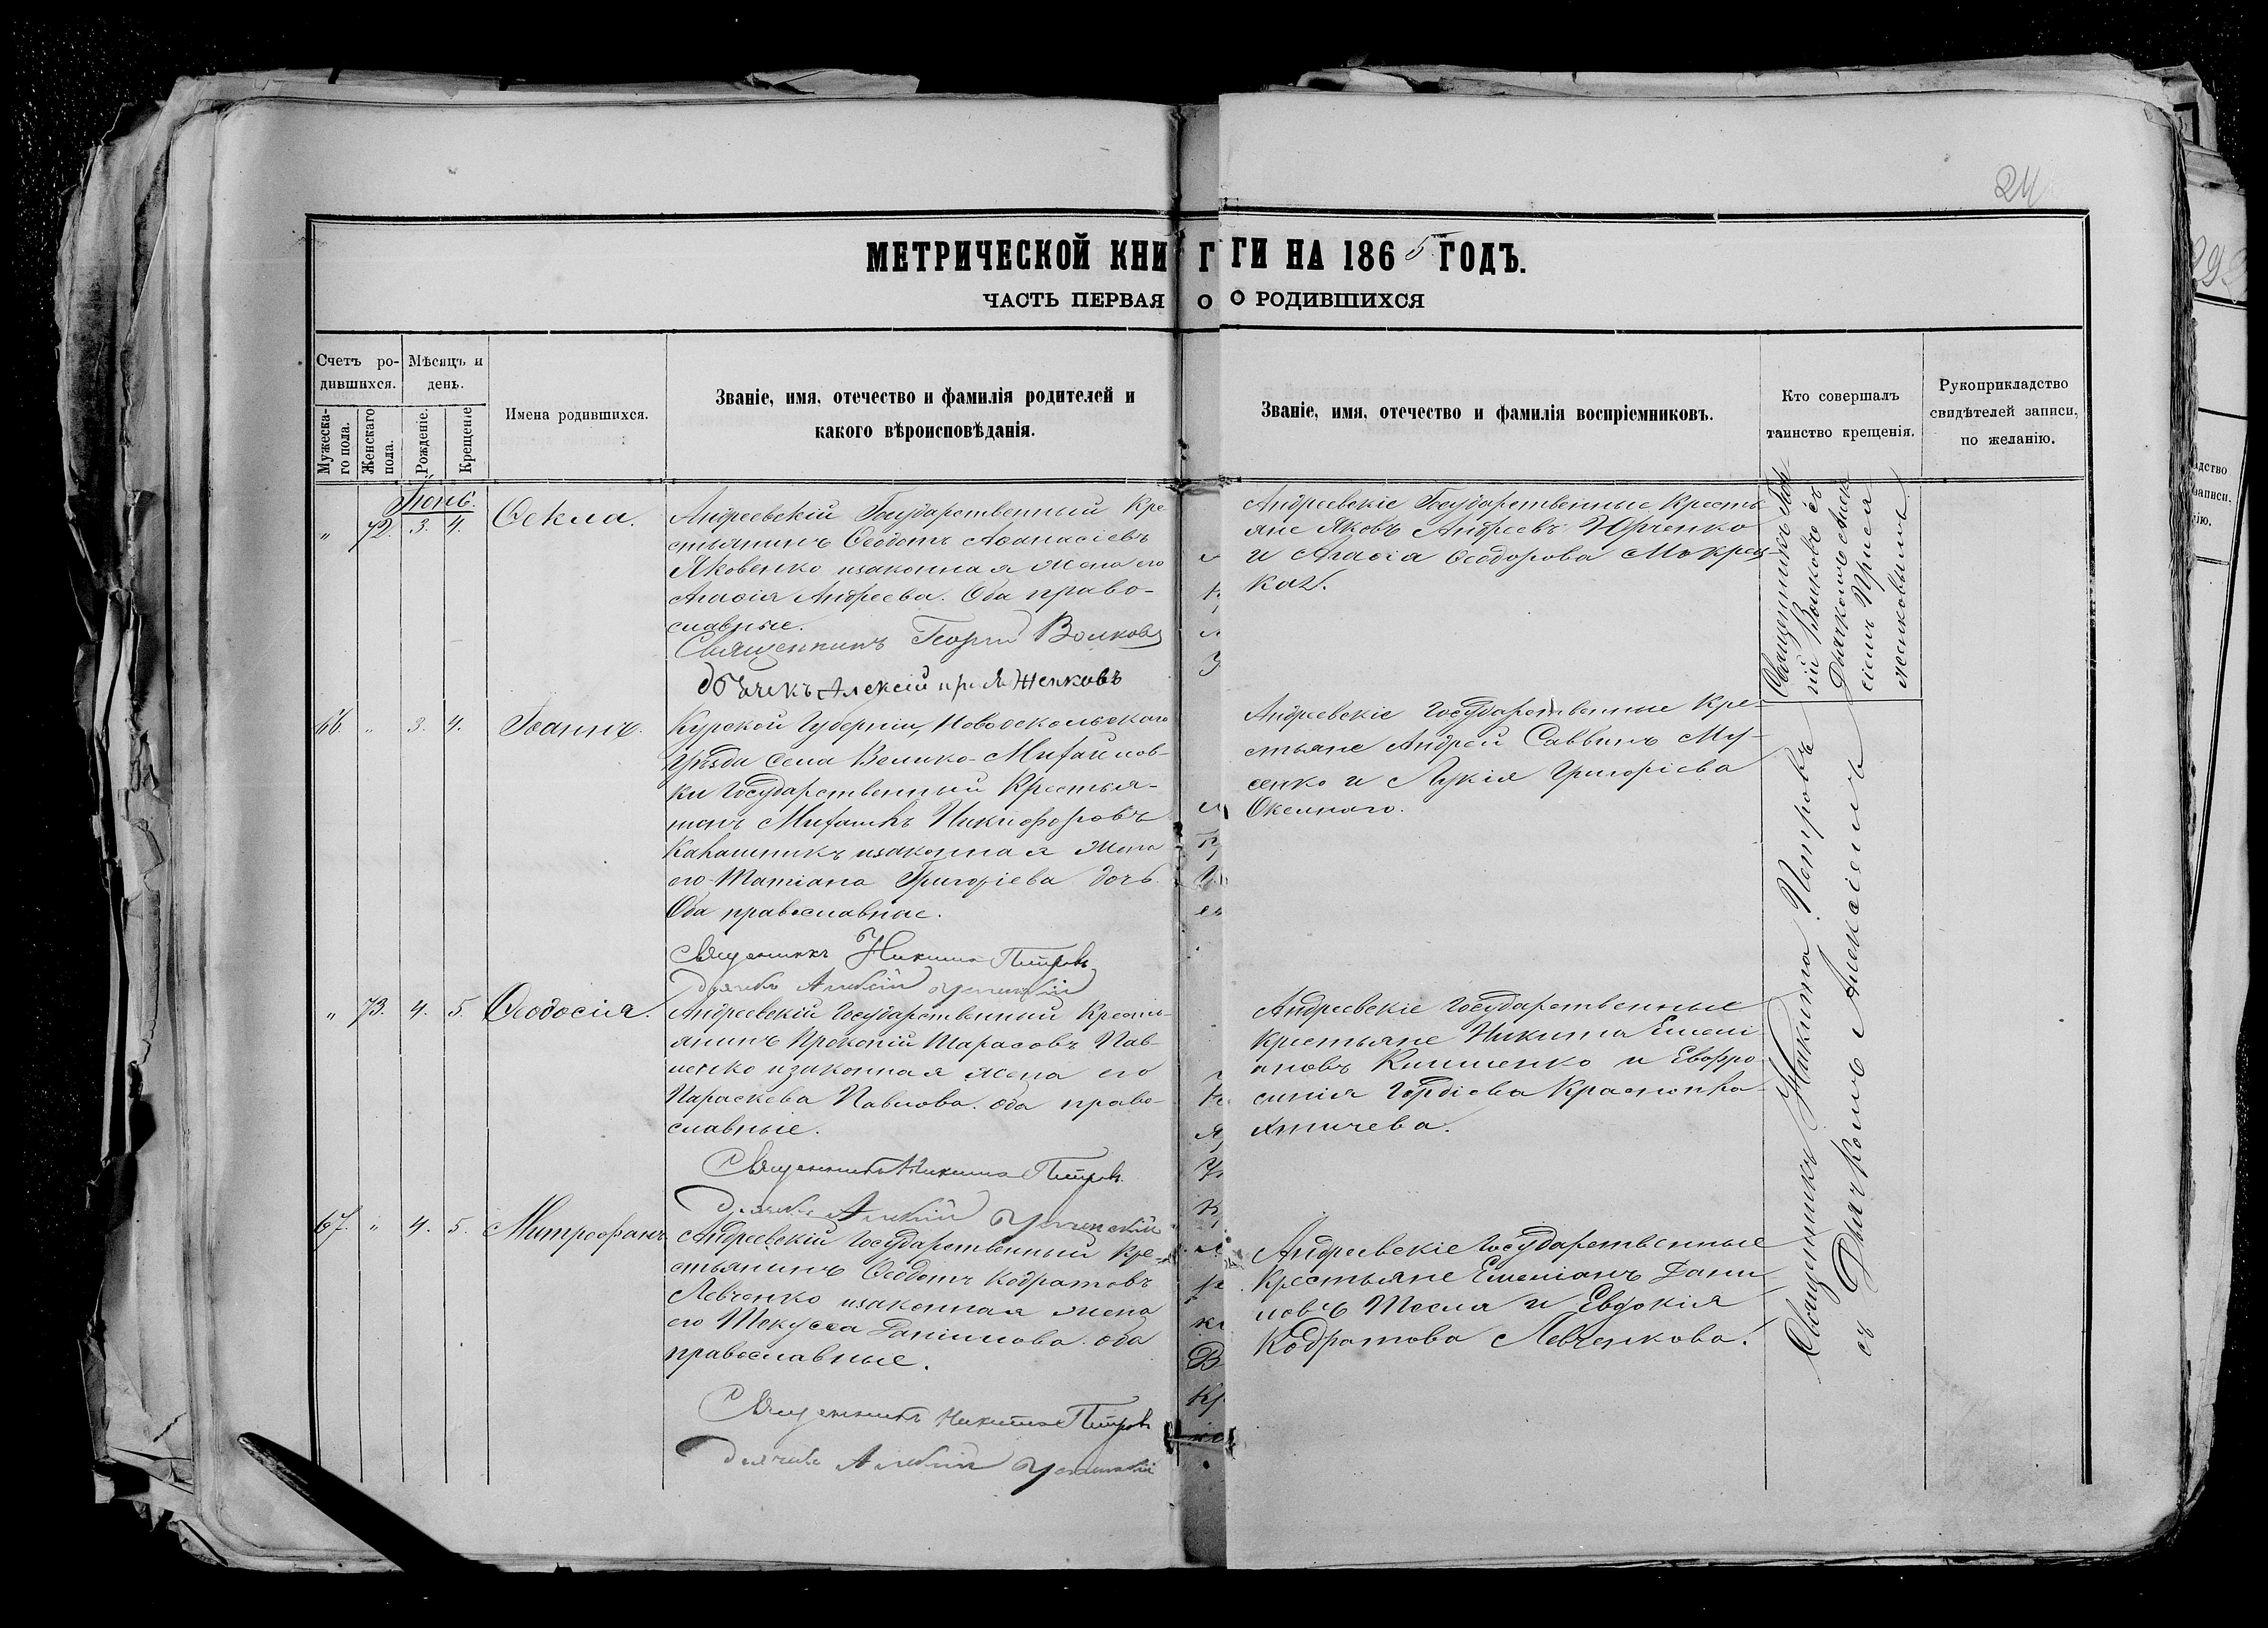 24
МЕТРИЧЕСКОЙ КНИГИ НА 1865 ГОДЪ.
ЧАСТЬ ПЕРВАЯ О РОДИВШИХСЯ
Счетъ родившихся.
Мужескаго пола.
Женскаго пола.
Мѣсяцъ и день.
Рожденіе.
Крещеніе
Имена родившихся.
Званіе, имя, отечество и фамилія родителей и
какого вѣроисповѣданія.
Званіе, имя, отечество и фамилія воспріемниковъ.
Кто совершалъ
таинство крещенія.
Рукоприкладство
свидѣтелей записи,
по желанію.
Іюнь.
" 72. 3. 4. Ѳекла.
Андреевскій Государственный Кре
стьянинъ Ѳеодотъ Аѳанасіевъ
Яковенко изаконная жена его
Агаѳія Андреева. Оба право-
славные.
Священникъ Георгій Волковъ
дьячекъ Алексій
Андреевскіе Государственные Кресть
яне Яковъ Андреевъ Юрченко
и Агаѳія Ѳеодорова Мокрец-
кая.
66. " 3. 4. Іоаннъ.
Курской Губерніи, Новооскольскаго
Уѣзда Села Велико-Михайлов-
ки Государственный Крестья-
нинъ Михаилъ Никифоровъ
изаконная жена
его Татіана Григоріева дочь.
Оба православные.
Священникъ Никита Петровъ
Дьячекъ Алексій Успенскій
Андреевскіе Государственные Кре-
стьяне Андрей Саввинъ Му-
сенко и Лукія Григоріева
" 73. 4. 5. Ѳеодосія.
Андреевскій Государственный Кресть-
янинъ Прокопій Тарасовъ Пав-
ленко изаконная жена его
Параскева Павлова. оба право-
славные.
Священникъ Никита Петровъ.
Дьячекъ Алексій Успенскій
Андреевскіе Государственные
Крестьяне Никита Емелі
ановъ Клименко и Евфро
синія Гордіева
67. " 4. 5. Митрофанъ.
Андреевскій Государственный Кре-
стьянинъ Ѳеодотъ Кодратовъ
Левченко изаконная жена
его Данііилова. оба
православные.
Священникъ Никита Петровъ
Дьячекъ Алексій Успенскій
Андреевскіе Государственные
Крестьяне Емеліанъ Дани
ловъ Тесля и Евдокія
Кодратова Левченкова.
Священникъ Геор
гій Волковъ съ
Дьячкомъ Алек
сіемъ
Священникъ Никита Петровъ
съ Дьячкомъ Алексіемъ